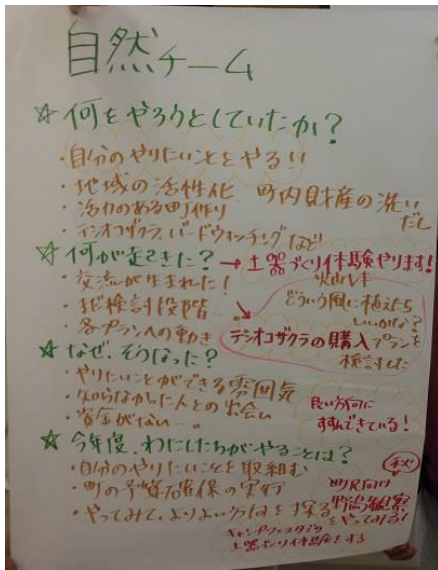 自然チーム
☆何をやろうとしていたか？
・自分のやりたいことをやる!!
・地域の活性化 町内財産の洗いだし
・活力のある町作り
・デシオコザクラ、バードウォッチングなど
☆何が起きた？→土器づくり体験やります！
・交流が生まれた！
・まだ検討段階
どういう風に植えたら
いいかな？
・各プランへの動き
テシオコザクラの購入プランを
検討した
☆なぜ、そうなった？
・やりたいことができる雰囲気
・知らなかった人との出会い
・資金がない…。
良い方向に
すすんできている！
☆今年度、わたしたちがやることは？
・自分のやりたいことを取組む
・町の予算確保の実行
・やってみて、よりよい方向を探る
秋
町民向け
野鳥観察
をやってみる！
キャンプフェスタで
土器づくり体験をする